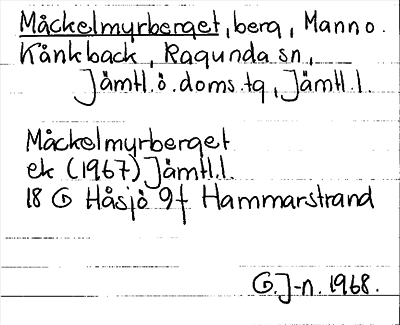 Måckelmyrberget, berg, Mann o.
Kånkback, Ragunda sn,
Jämtl.ö.doms.tg, Jämtl.l.
Måckelmyrberget
ek (1967) Jämtl.l.
18 G Håsjö 9f Hammarstrand
G.J-n. 1968.